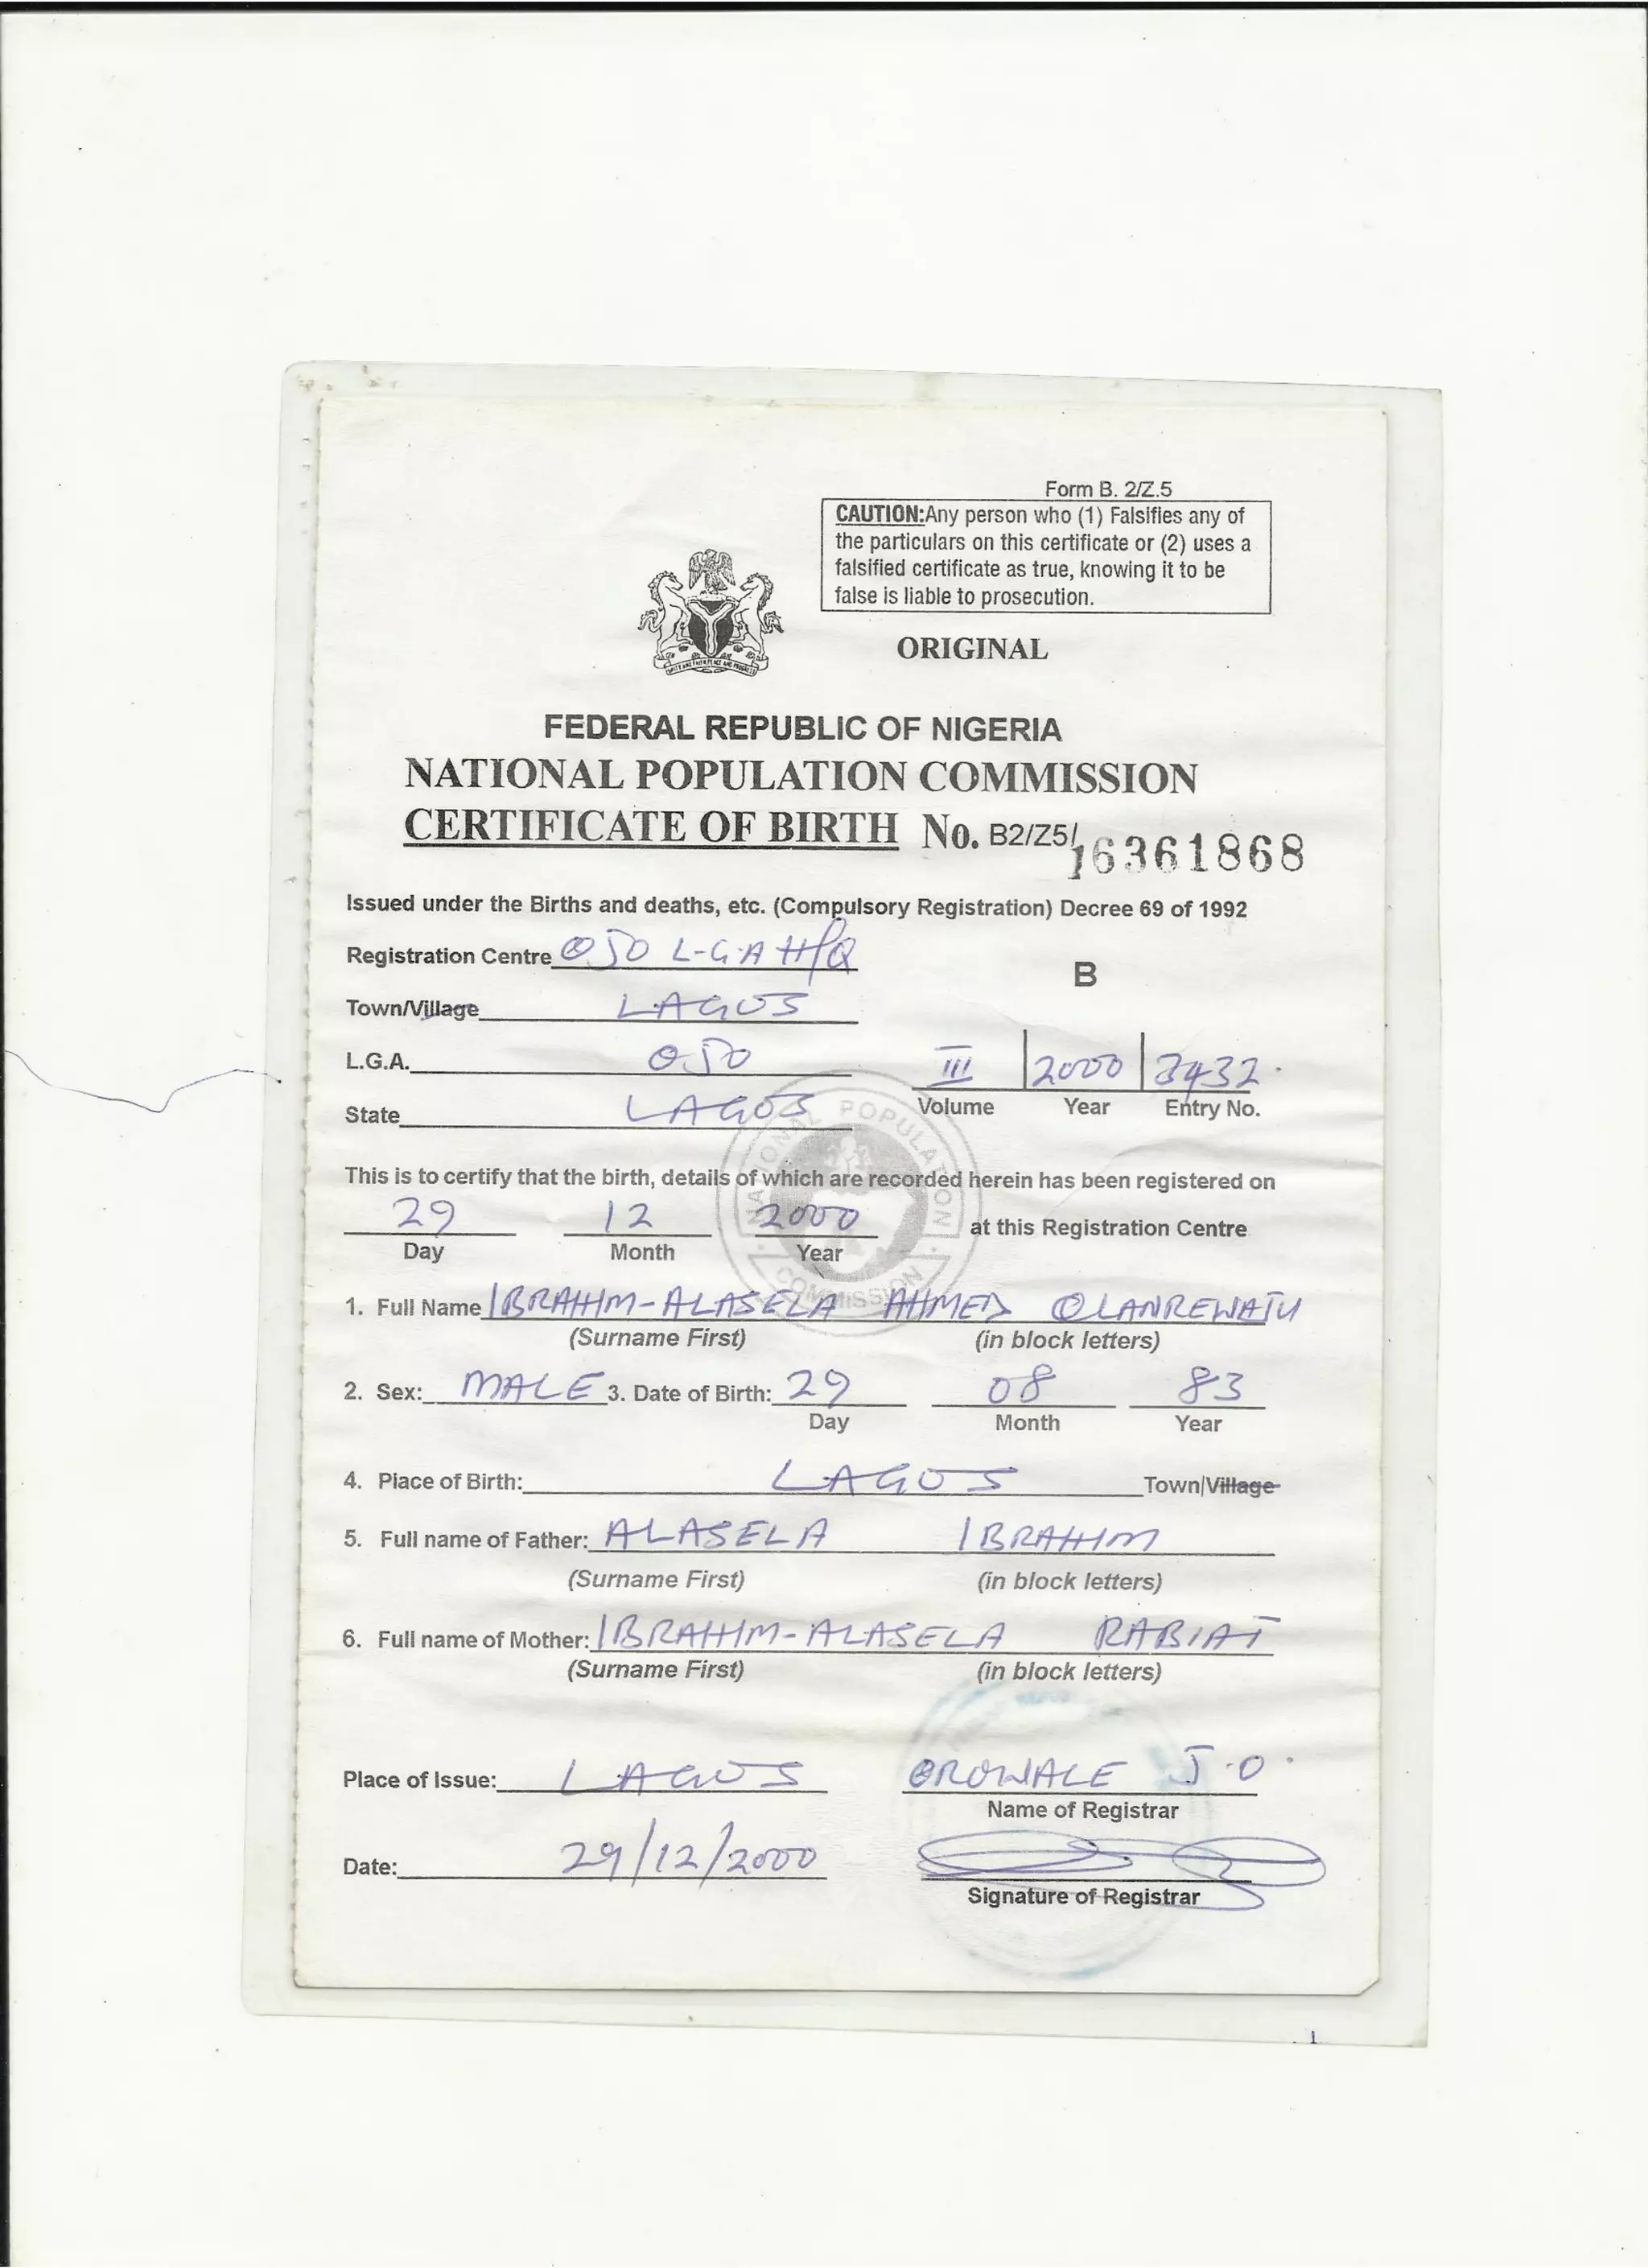 Form B. 2/Z.5
CAUTION:Any person who (1) Falsifies any of
the particulars on this certificate or (2) uses a
falsified certificate as true, knowing it to be
false is liable to prosecution.
ORIGINAL
FEDERAL REPUBLIC OF NIGERIA
NATIONAL POPULATION COMMISSION
CERTIFICATE OF BIRTH No. B2/Z5/16361868
Issued under the Births and deaths, etc. (Compulsory Registration) Decree 69 of 1992
Registration Centre OJO L-G-A H/Q
B
Town/Village LAGOS
L.G.A. OJO
III 2000 3432
Volume Year Entry No.
State LAGOS
NATIONAL POPULATION COMMISSION
This is to certify that the birth, details of which are recorded herein has been registered on
29 12 2000 at this Registration Centre
Day Month Year
1. Full Name IBRAHIM-ALASELA AHMED OLANREWAJU
(Surname First) (in block letters)
2. Sex: MALE 3. Date of Birth: 29 08 83
Day Month Year
4. Place of Birth: LAGOS Town/Village
5. Full name of Father: ALASELA IBRAHIM
(Surname First) (in block letters)
6. Full name of Mother: IBRAHIM-ALASELA RABIAT
(Surname First) (in block letters)
Place of Issue: LAGOS OROWALE J.O.
Name of Registrar
Date: 29/12/2000
Signature of Registrar